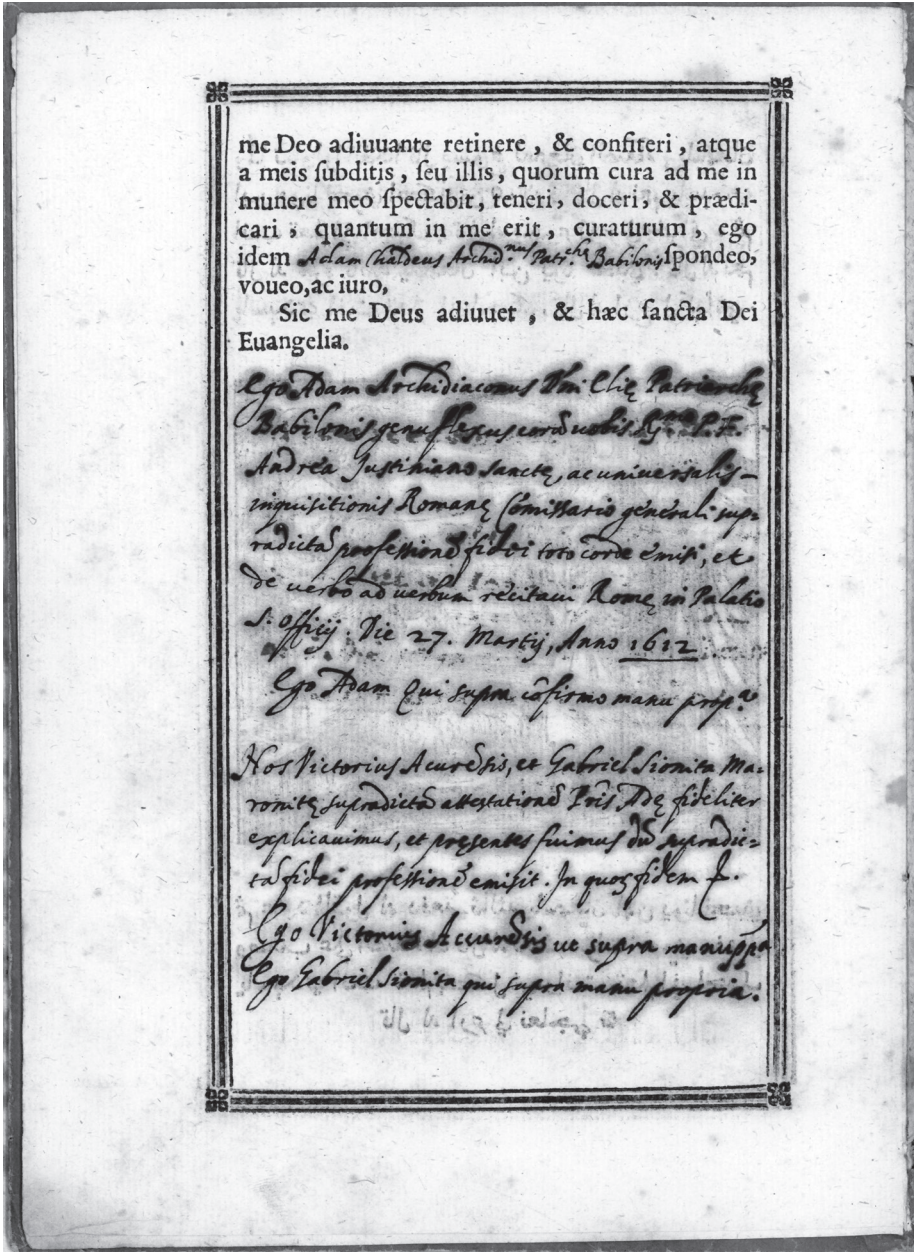 me Deo adiuuante retinere, & confiteri, atque
a meis ſubditis, ſeu illis, quorum cura ad me in
munere meo ſpectabit, teneri, doceri, & prædi-
cari, quantum in me erit, curaturum, ego
idem Adam Chaldeus Archid.nus Patr.chę Babilonis ſpondeo,
voueo, ac iuro,
Sic me Deus adiuuet, & hæc ſancta Dei
Euangelia.
Ego Adam Archidiaconus Elię Patriarchę
Babilonis genuflexus corā uobis P. F.
Andrea Justiniano sanctę, ac universalis
inquisitionis Romanę Cōmissario generali sup=
radictā professionē fidei toto corde emisi, et
de verbo ad verbum recitavi Romę in Palatio
S. Officij. Die 27. Martij, Anno 1612
Ego Adam qui supra cōfirmo manu prop.a
Nos Victorius Acurēsis, et Gabriel Sionita Ma=
ronitę supradictā attestationē Pr̄is Adę fideliter
explicauimus, et pręsentes fuimus dū supradic=
tā fidei professionē emisit. In quoꝝ fidem
Ego Victorius Accurēsis ut supra manu
Ego Gabriel Sionita qui supra manu propria.